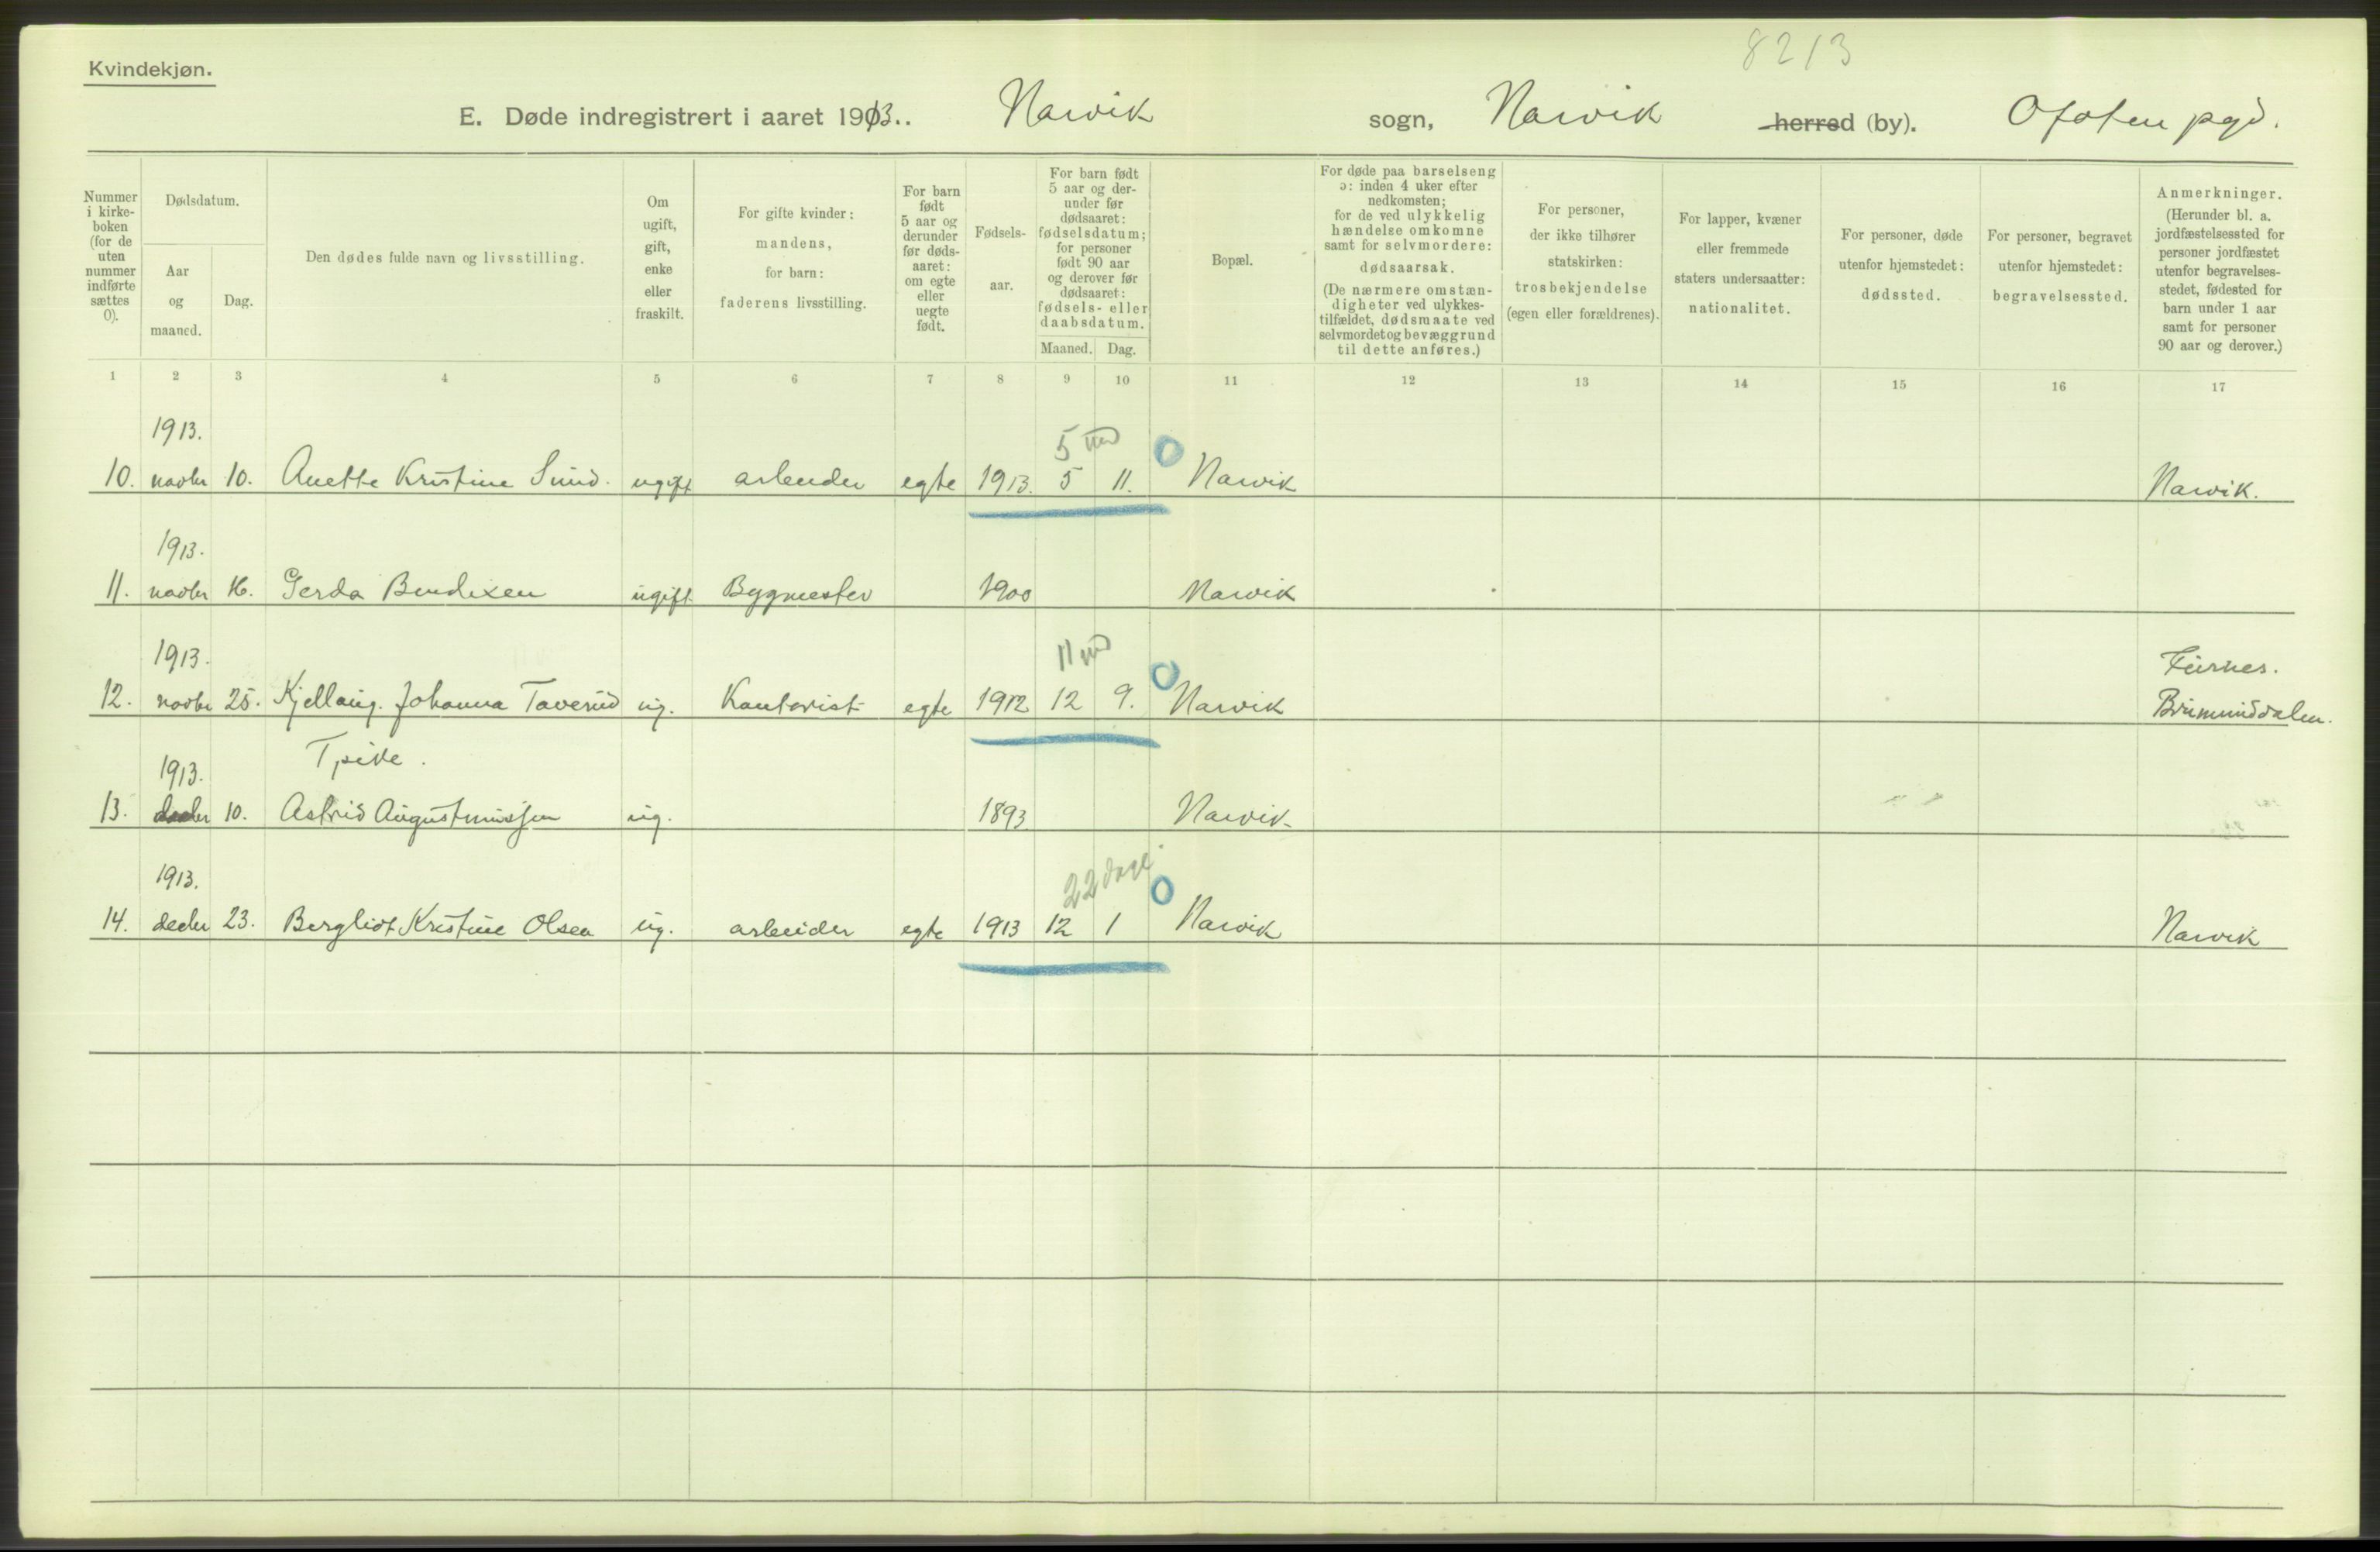 8213
Kvindekjøn.
E. Døde indregistrert i aaret 1913. Narvik sogn, Narvik herred (by). Ofoten pgd.
Nummer i kirkeboken (for de uten nummer indførte sættes 0).
Dødsdatum.
Aar og maaned.
Dag.
Den dødes fulde navn og livsstilling.
Om ugift, gift, enke eller fraskilt.
For gifte kvinder: mandens, for barn: faderens livsstilling.
For barn født 5 aar og derunder før dødsaaret: om egte eller uegte født.
Fødselsaar.
For barn født 5 aar og derunder før dødsaaret: fødselsdatum; for personer født 90 aar og derover før dødsaaret: fødsels- eller daabsdatum.
Maaned. Dag.
Bopæl.
For døde paa barselseng ɔ: inden 4 uker efter nedkomsten; for de ved ulykkelig hændelse omkomne samt for selvmordere: dødsaarsak. (De nærmere omstændigheter ved ulykkestilfældet, dødsmaate ved selvmordet og bevæggrund til dette anføres.)
For personer, der ikke tilhører statskirken: trosbekjendelse (egen eller forældrenes).
For lapper, kvæner eller fremmede staters undersaatter: nationalitet.
For personer, døde utenfor hjemstedet: dødssted.
For personer, begravet utenfor hjemstedet: begravelsessted.
Anmerkninger. (Herunder bl. a. jordfæstelsessted for personer jordfæstet utenfor begravelsesstedet, fødested for barn under 1 aar samt for personer 90 aar og derover.)
1 2 3 4 5 6 7 8 9 10 11 12 13 14 15 16 17
1913. 5 md
10. novbr 10. Anette Kristine Sund. ugift arbeider egte 1913. 5 11. Narvik Narvik.
1913.
11. novbr 16. Gerda Bendixen ugift Bygmester 1900 Narvik
1913. 11 md Furnes.
12. novbr 25. Kjellaug Johanna Taverud ug. Kontorist egte 1912 12 9. Narvik Brumunddalen.
1913. Tpike.
13. decbr 10. Astrid Augustinussen ug. 1893 Narvik
1913. 22 dage
14. decbr 23. Bergliot Kristine Olsen ug. arbeider egte 1913 12 1 Narvik Narvik